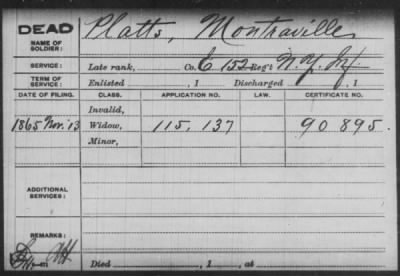 DEAD
NAME OF SOLDIER: Platts, Montraville
SERVICE: Late rank, Co. E 152 Reg't N.Y. Inf
TERM OF SERVICE: Enlisted , 1 Discharged , 1
DATE OF FILING. CLASS. APPLICATION NO. LAW. CERTIFICATE NO.
Invalid,
1865 Nov. 13 Widow, 115,137 90895.
Minor,
ADDITIONAL SERVICES:
REMARKS:
Died , 1 , at